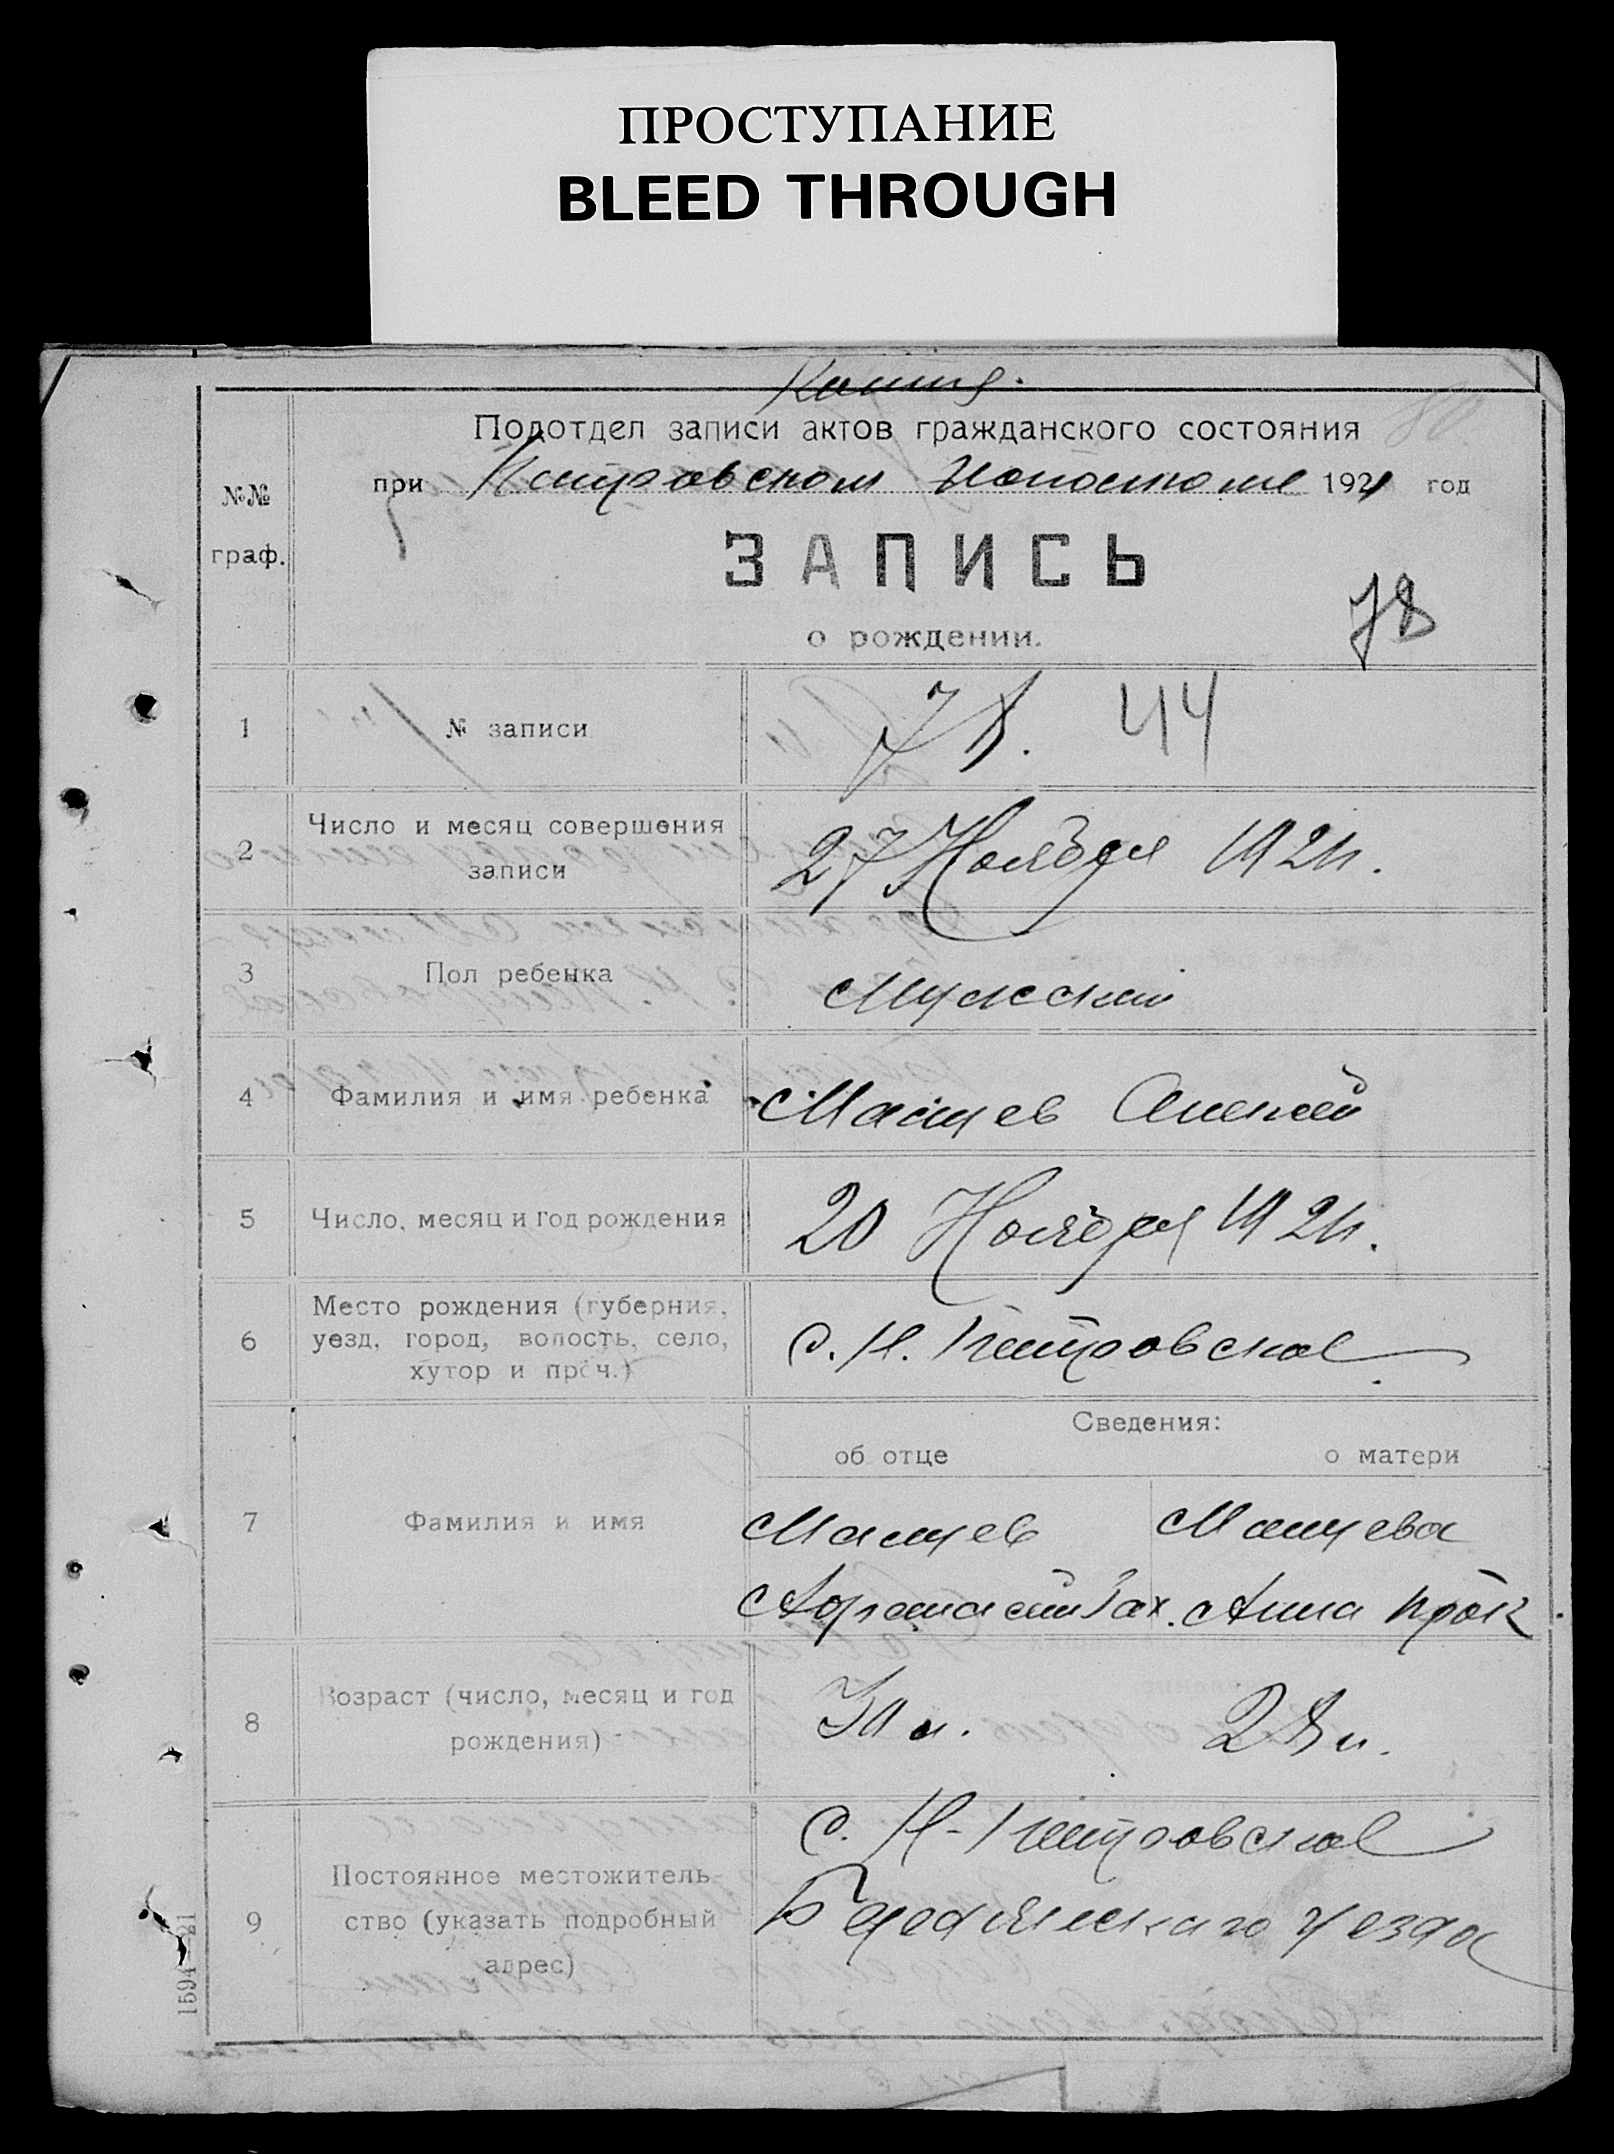 ПРОСТУПАНИЕ
BLEED THROUGH
Копия.
Подотдел записи актов гражданского состояния
при Петровском Исполкоме 1921 год
№№
граф.
ЗАПИСЬ
78
о рождении.
1 № записи 78. 44
2 Число и месяц совершения записи 27 Ноября 1921.
3 Пол ребенка Мужской
4 Фамилия и имя ребенка Мацев Алексей
5 Число, месяц и год рождения 20 Ноября 1921.
6 Место рождения (губерния, уезд, город, волость, село, хутор и проч.) С. Н. Петровское
Сведения:
об отце о матери
7 Фамилия и имя Мацев Мацева
Афанасий Зах. Анна Прок.
8 Возраст (число, месяц и год рождения) 28 л.
С. Н-Петровское
9 Постоянное местожительство (указать подробный адрес) Бердянскаго уезда
1594—21